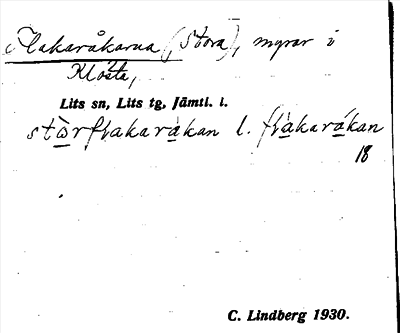 Flakaråkarna (, Stora), myrar i
Klösta,
Lits sn, Lits tg, Jämtl. l.
stòrflakaràkan l. flàkaràkan
18
C. Lindberg 1930.